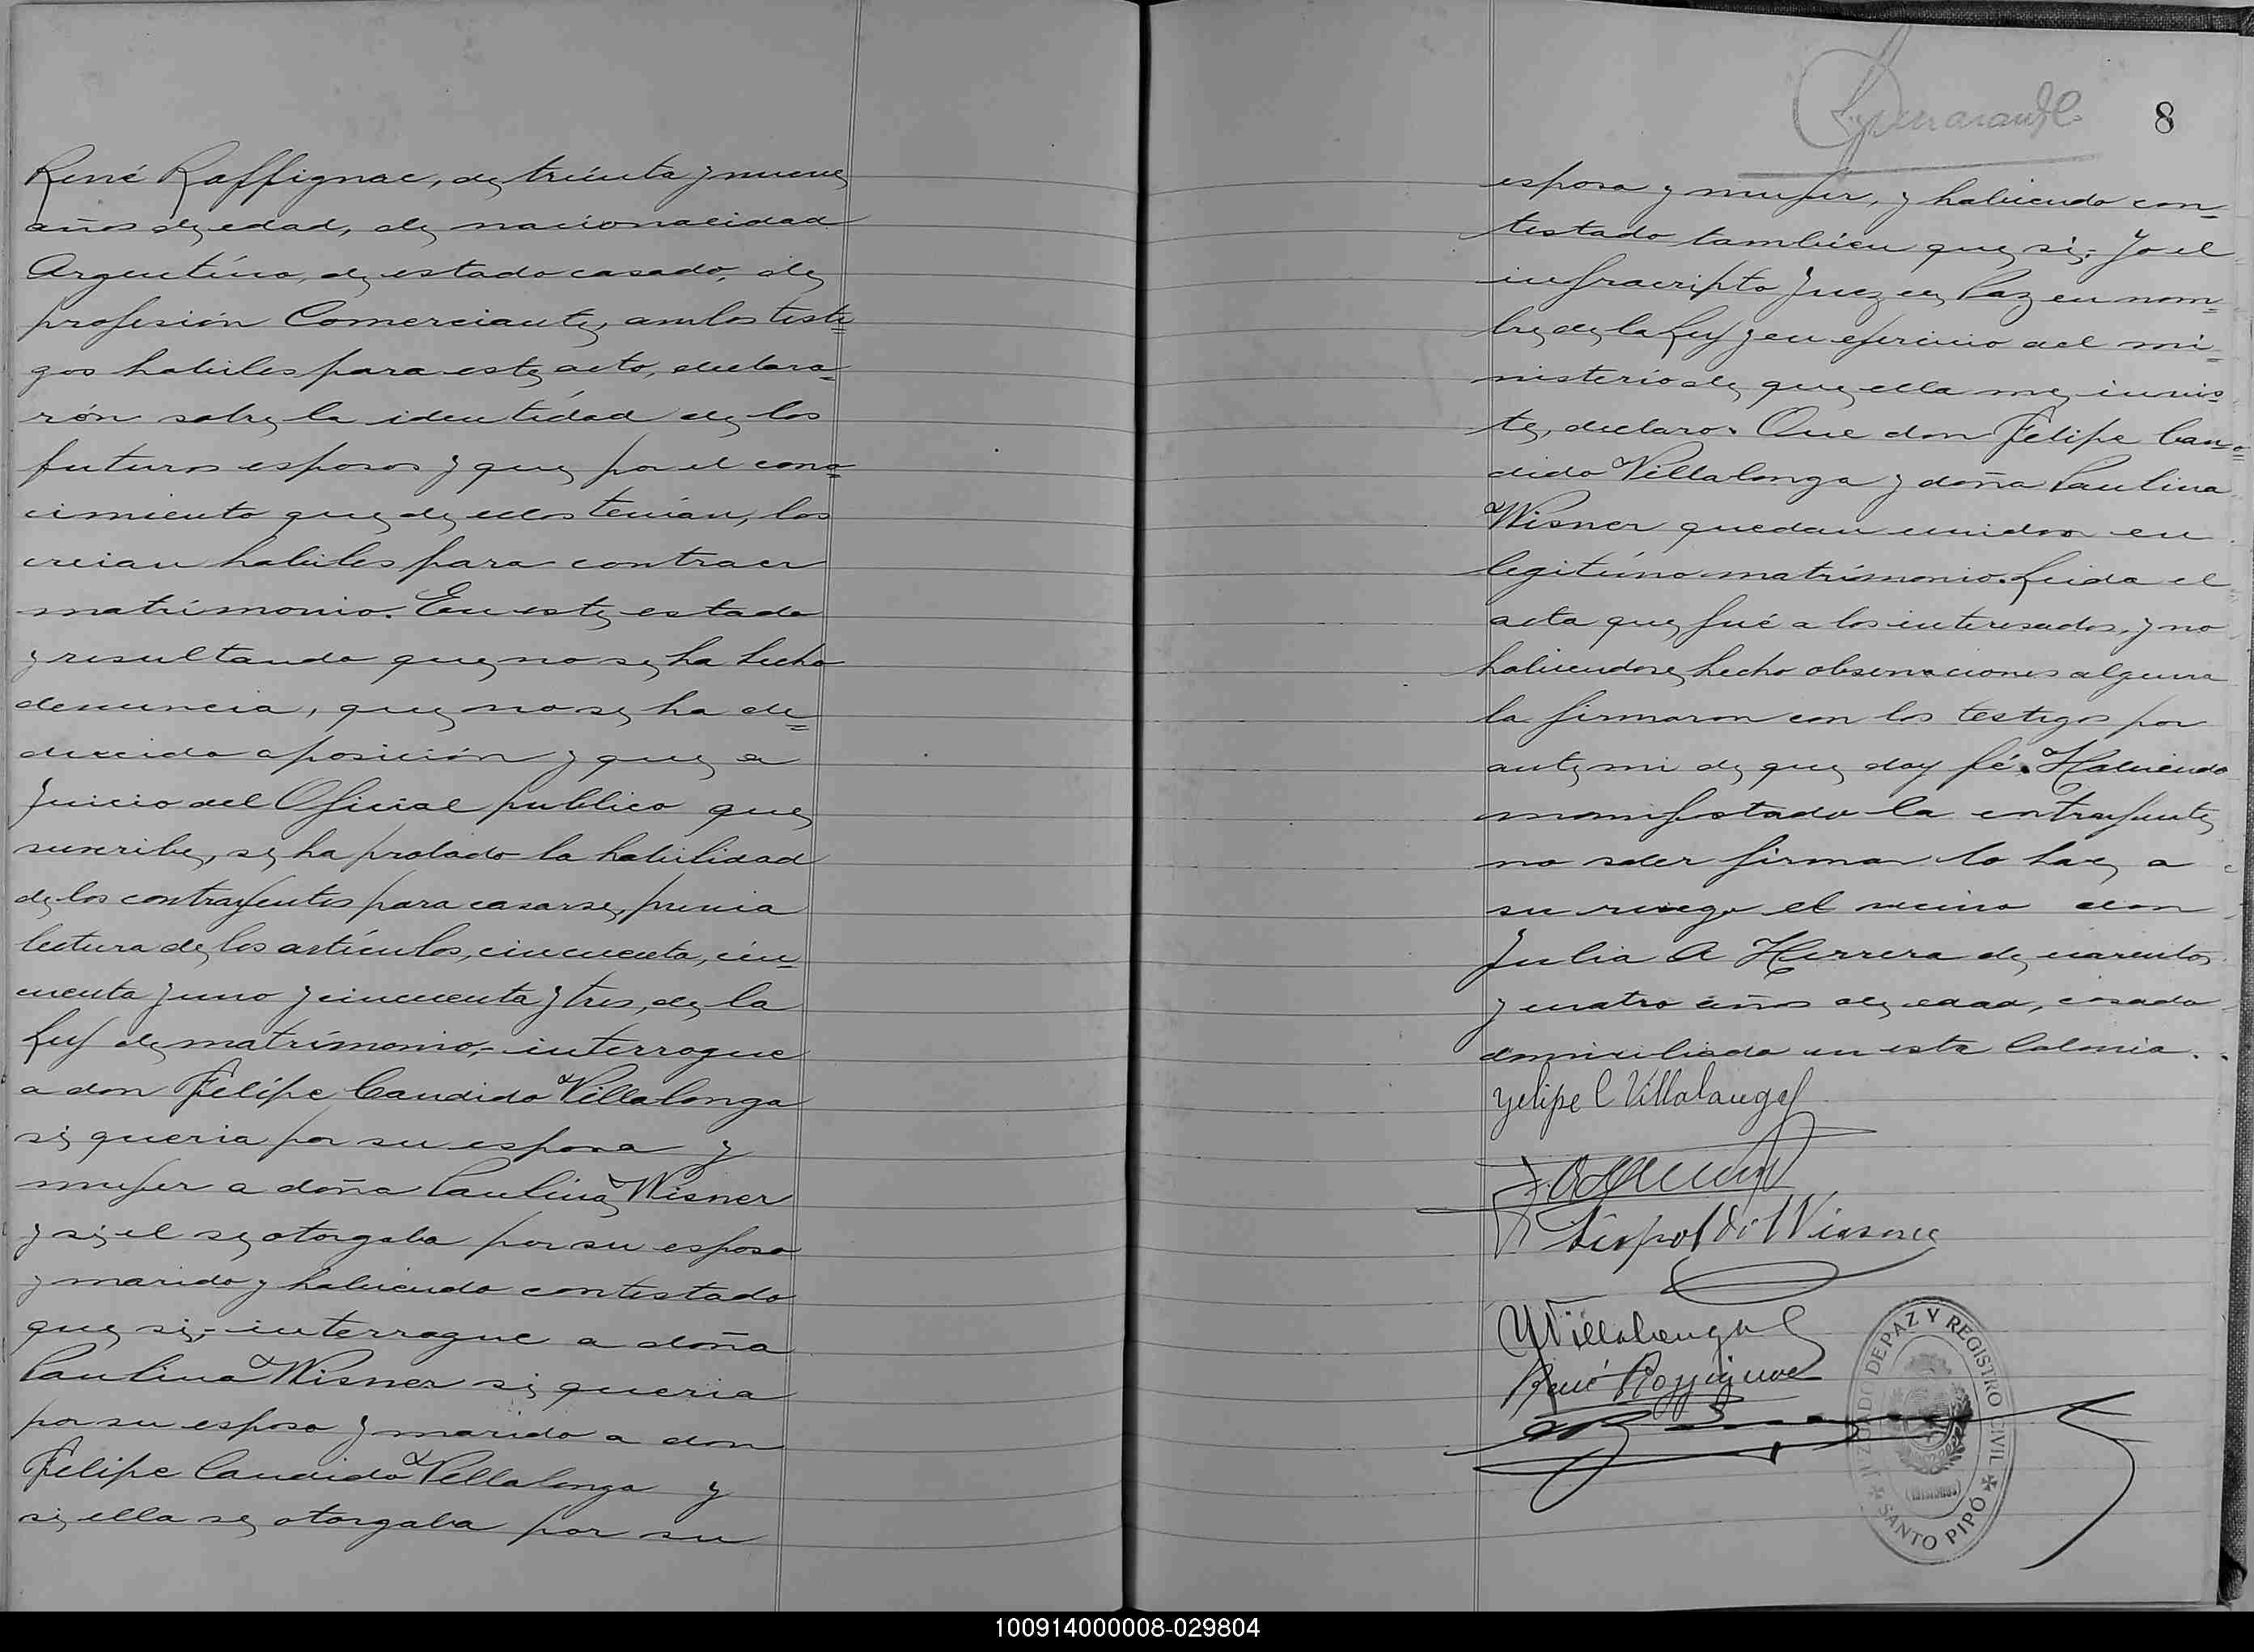 René Raffignac, de treinta y nueve
años de edad, de nacionalidad
Argentino, de estado casado, de
profesión Comerciante, ambos testi=
gos habiles para este acto, declara=
rón sobre la identidad de los
futuros esposos y que por el cono=
cimiento que de ellos tenian, los
creian habiles para contraer
matrimonio. En este estado
y resultando que no se ha hecho
denuncia, que no se ha de=
ducido oposición y que a
Juicio del Oficial publico que
suscribe, se ha probado la habilidad
de los contrayentes para casarse, previa
lectura de los artículos, cincuenta, cin=
cuenta y uno y cincuenta y tres, de la
Ley de matrimonio,- interrogue
a don Felipe Candido Villalonga
si queria por su esposa y
mujer a doña Paulina Wisner
y si el se otorgaba por su esposo
y marido y habiendo contestado
que si,- interrogue a doña
Paulina Wisner si queria
por su esposo y marido a don
Felipe Candido Villalonga y
si ella se otorgaba por su
8
esposa y mujer, y habiendo con=
testado tambien que si,- Yo el
infracripto Juez de Paz en nom=
bre de la Ley y en ejercicio del mi=
nisterio de que ella me invis=
te, declaro. Que don Felipe Can=
dido Villalonga y doña Paulina
Wisner quedan unidos en
legitimo matrimonio. Leida el
acta que fué a los interesados, y no
habiendose hecho observaciones alguna
la firmaron con los testigos por
ante mi de que doy fé. Habiendo
manifestado la contrayente
no saber firmar lo hace a
su ruego el vecino don
Julio A Herrera de cuarenta
y cuatro años de edad, casado
domiciliado en esta Colonia.
Felipe C Villalonga
Leopoldo Wisner
Villalonga
René Raffignac
JUZGADO DE PAZ Y REGISTRO CIVIL
(MISIONES)
SANTO PIPÓ
100914000008-029804